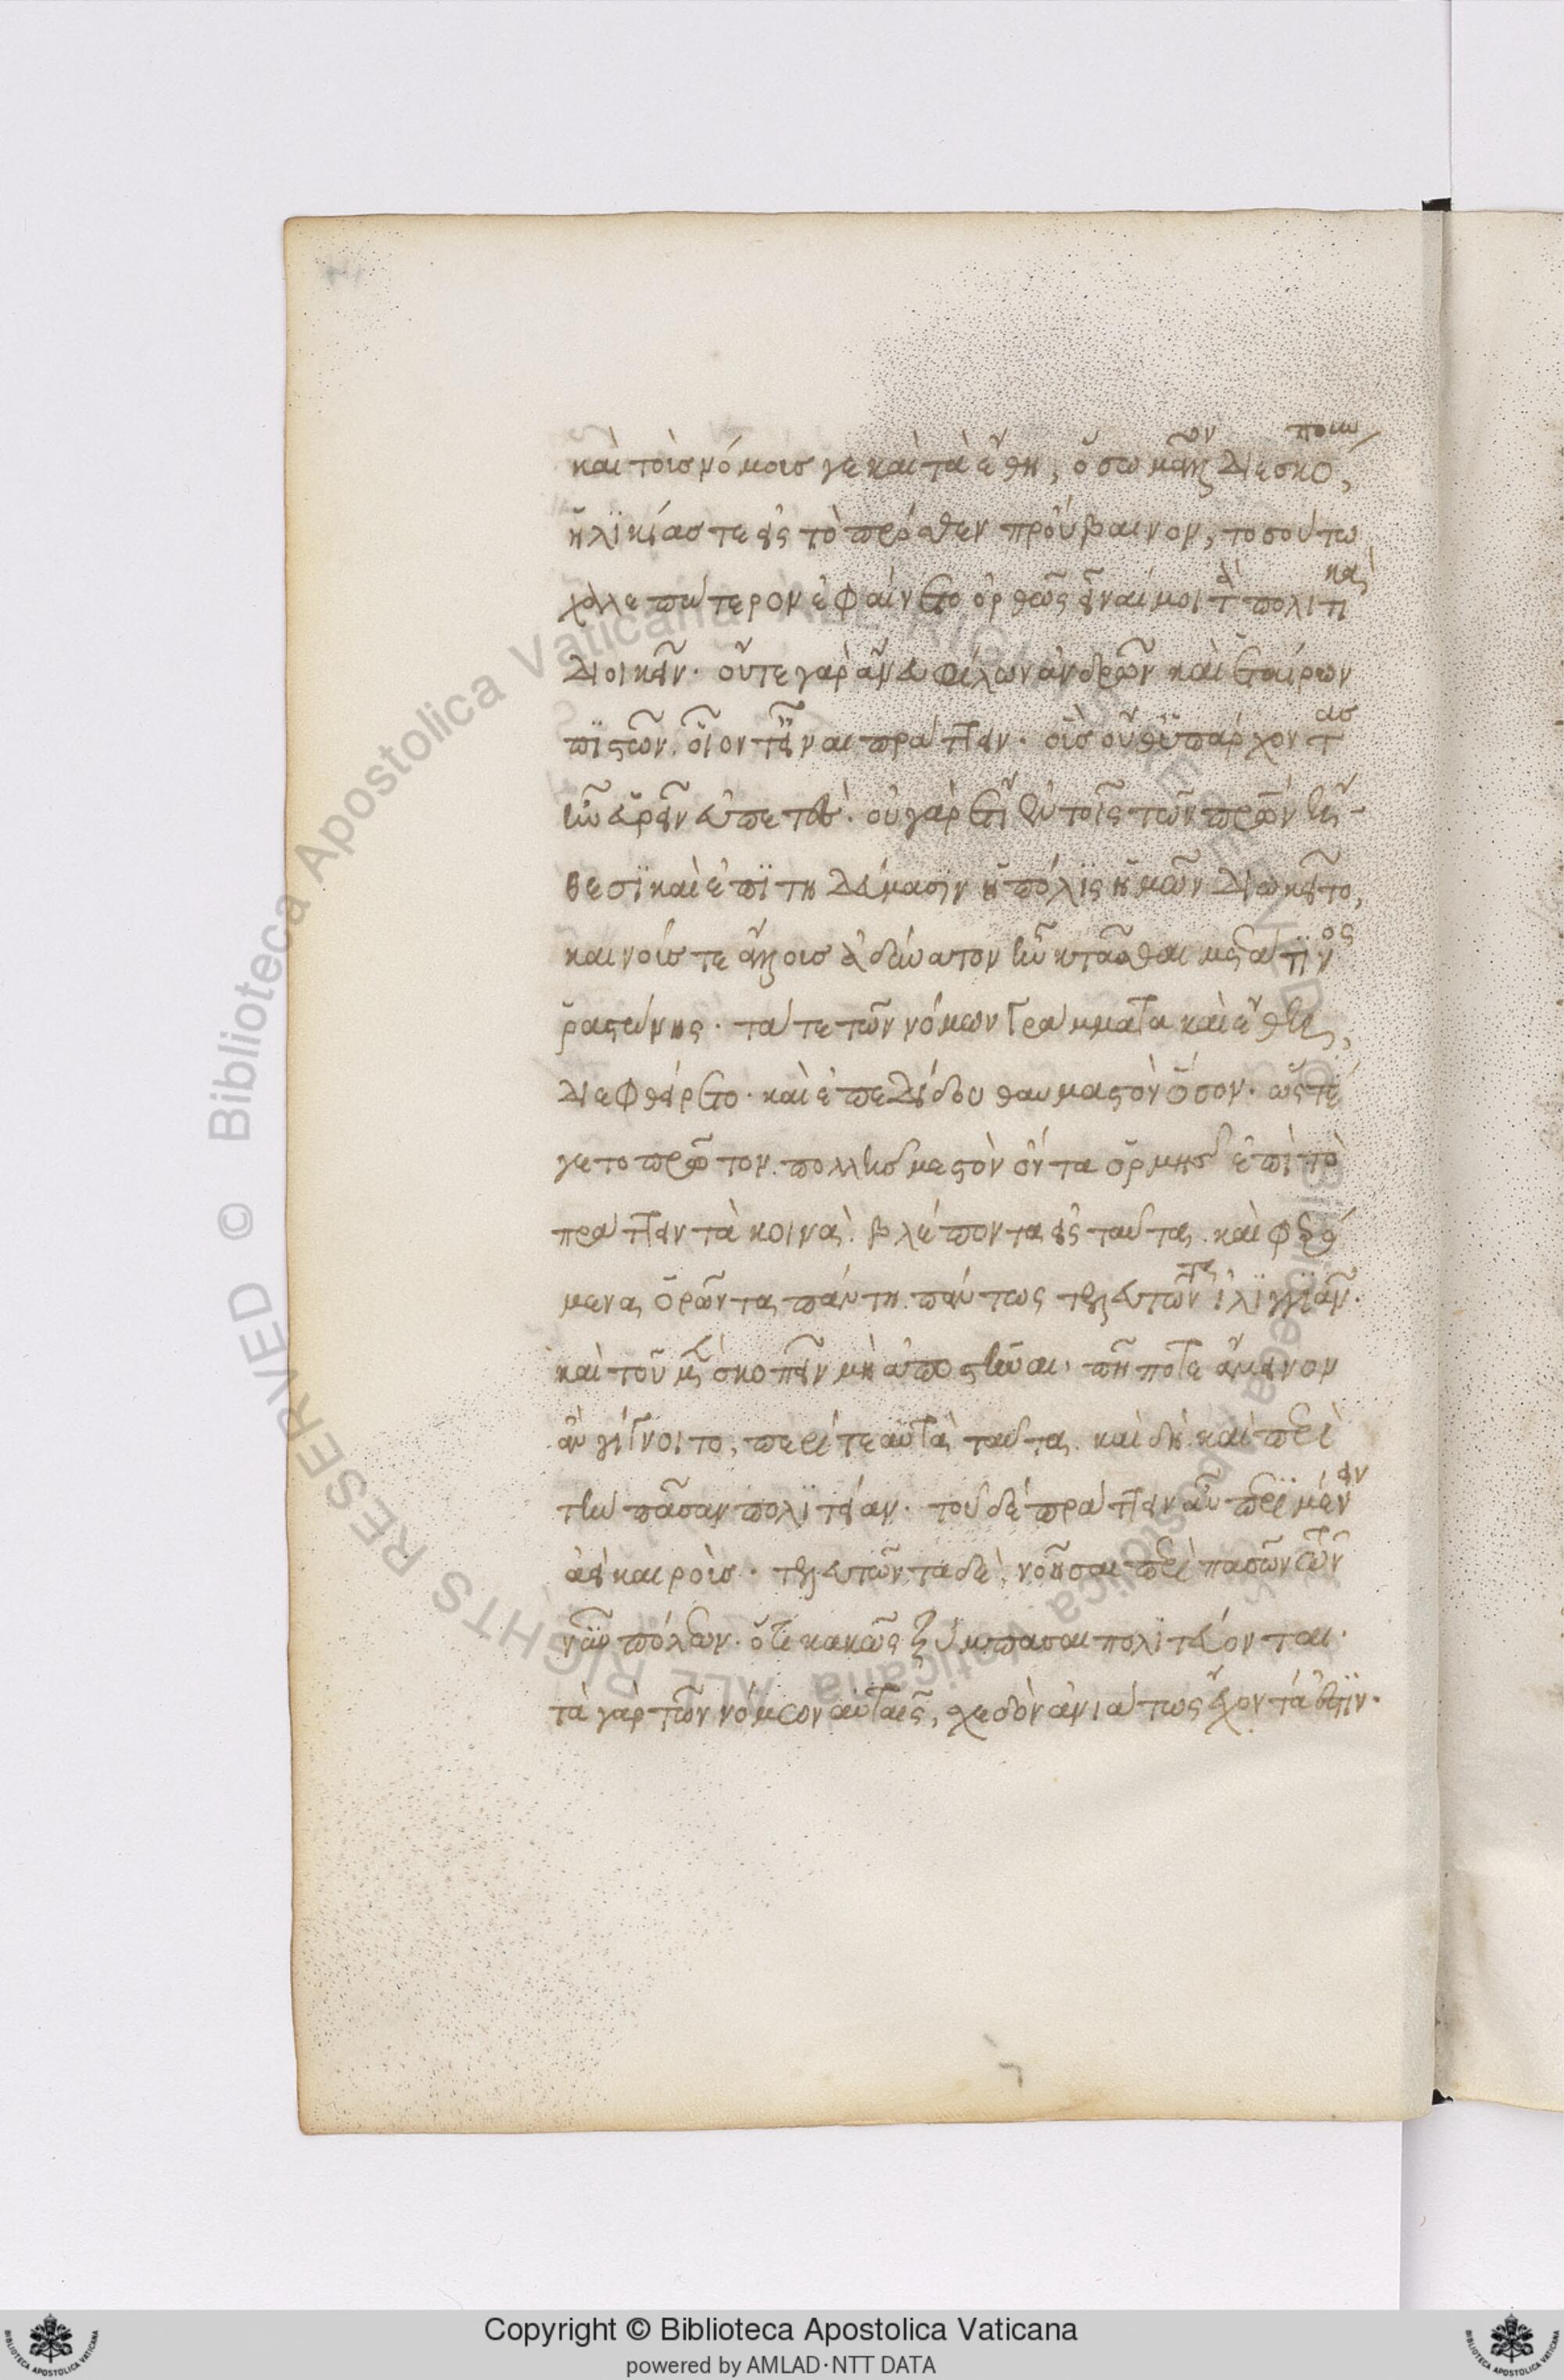 καὶ τοῖς νόμοις γε καὶ τὰ ἔθη, ὅσῳ μᾶλλον διεσκόπουν,
ἡλικίας τε εἰς τὸ πρόσθεν προύβαινον, τοσούτῳ
χαλεπώτερον ἐφαίνετο ὀρθῶς εἶναί μοι τὰ πολιτικὰ
διοικεῖν. οὔτε γὰρ ἄνευ φίλων ἀνδρῶν καὶ ἑταίρων
πιστῶν. οἷόν τ' εἶναι πράττειν. οἷς οὔθ' ὑπάρχοντας
ἦν εὑρεῖν εὐπετές. οὐ γὰρ ἔτι ἐν τοῖς τῶν πρων
θεσι καὶ ἐπιτηδεύμασιν ἡ πόλις ἡμῶν διῳκεῖτο,
καινούς τε ἄλλους ἀδύνατον ἦν κτᾶσθαι μετά τινος
ῥαστώνης. τά τε τῶν νόμων γράμματα καὶ ἔθη,
διεφθείρετο. καὶ ἐπεδίδου θαυμαστὸν ὅσον. ὥστε
με τὸ πρῶτον πολλῆς μεστὸν ὄντα ὁρμῆς ἐπὶ τὸ
πράττειν τὰ κοινά. βλέποντα εἰς ταῦτα. καὶ φερό
μενα ὁρῶντα πάντη πάντως τελευτῶντα ἰλιγγιᾶν.
καὶ τοῦ μὲν σκοπεῖν μὴ ἀποστῆναι. πῆ ποτε ἄμεινον
ἂν γίγνοιτο, περί τε αὐτὰ ταῦτα. καὶ δὴ καὶ περὶ
τὴν πᾶσαν πολιτείαν. τοῦ δὲ πράττειν αὖ περιμένειν
ἀεὶ καιρούς. τελευτῶντα δὲ, νοῆσαι περὶ πασῶν τῶν
νῦν πόλεων. ὅτι κακῶς ξύμπασαι πολιτεύονται.
τὰ γὰρ τῶν νόμων αὐταῖς, σχεδὸν ἀνιάτως ἔχοντά ἐστιν.
Copyright © Biblioteca Apostolica Vaticana
powered by AMLAD·NTT DATA